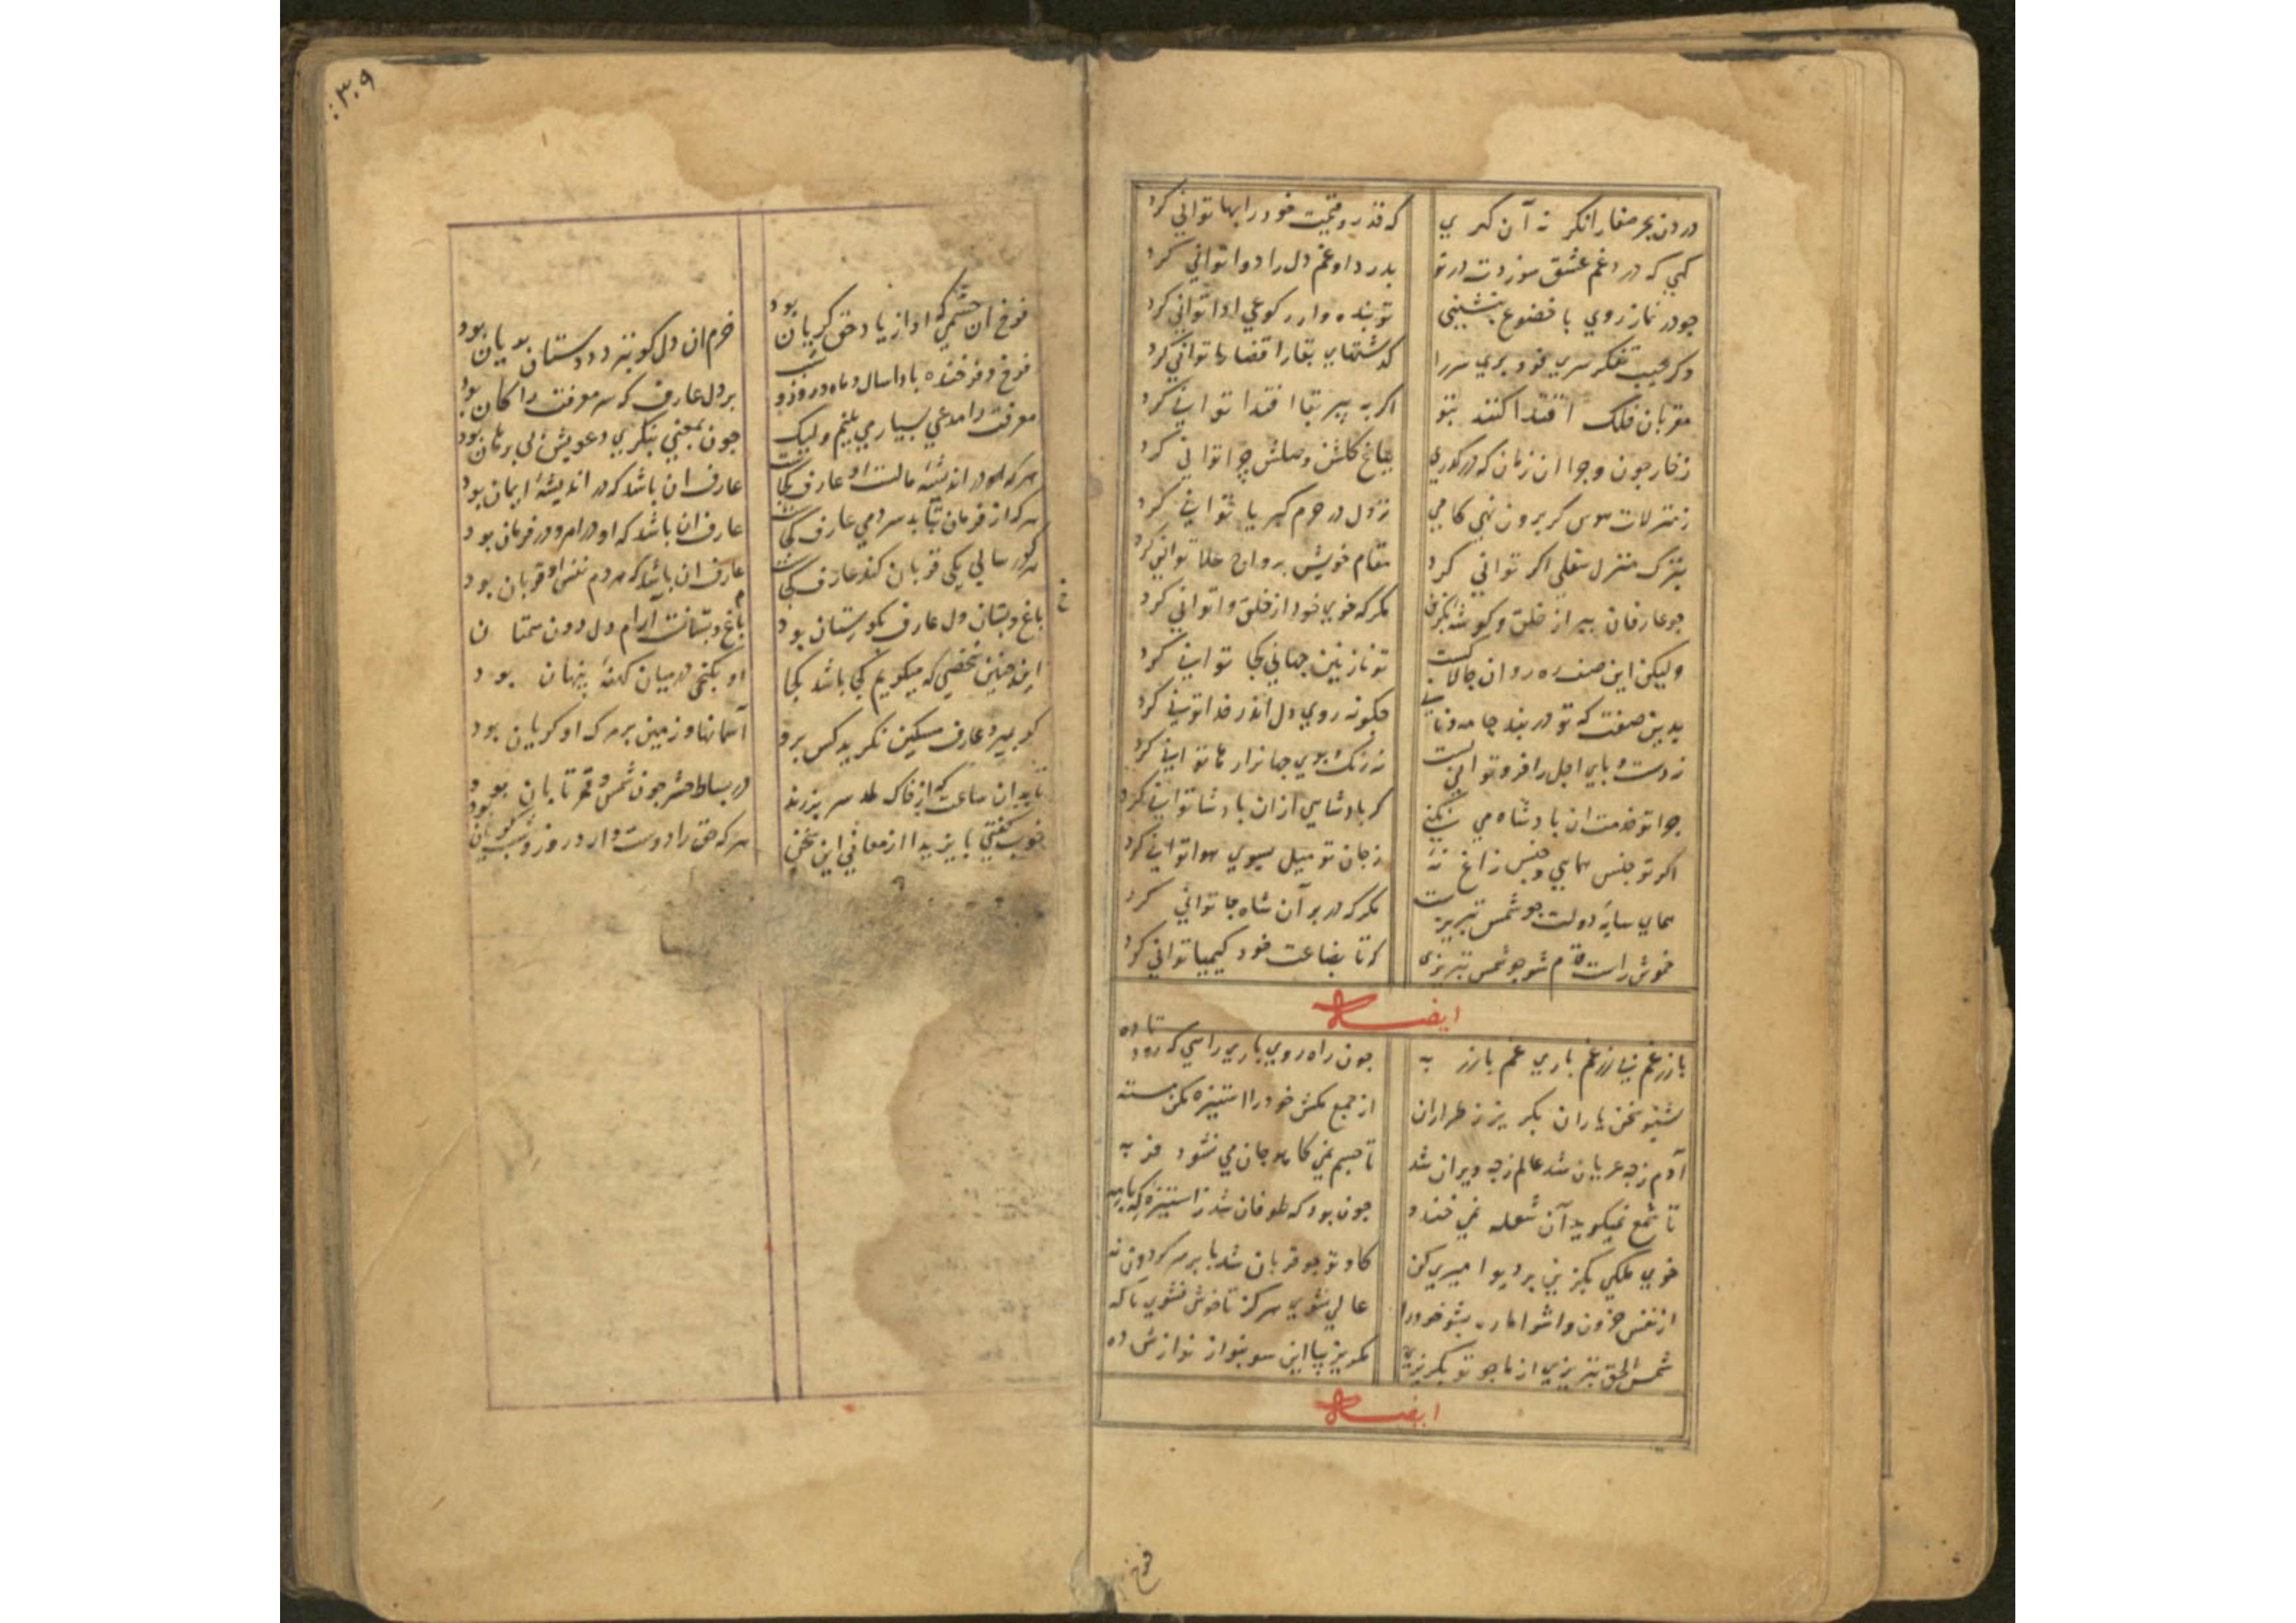 درون بحر صفا را نکر نه آن کهری که قدر و قیمت خود را بها توانی کرد
کهی که درد غم عشق سوزدت در تو بدرد او غم دل را دوا توانی کرد
جو در نماز روی با خضوع بنشینی تو بنده وار رکوعی ادا توانی کرد
وکر بجیب تفکر سری فرو بری سر را کذشتهای بقا را قضا رها توانی کرد
مقربان فلک اقتدا کنند بتو اکر به پیر بقا اقتدا توانی کرد
ز خار جون و جرا ان زمان که در کذری بباغ کلشن وصلش چرا توانی کرد
ز منزلات هوس کر برون نهی کامی نزول در حرم کبریا توانی کرد
بترک منزل سفلی اکر توانی کرد مقام خویش بر واج علا توانی کرد
جو عارفان ببر از خلق و کوشه بکزین مکر که خوی خود از خلق وا توانی کرد
ولیکن این صفت ره روان جالاکست تو نازنین جهانی کجا توانی کرد
بدین صفت که تو در بند جامه و نانی جکونه روی دل اندر خدا توانی کرد
نه دست و پای اجل را فرو توانی بست نه رنک و بوی جهانرا رها توانی کرد
جرا تو خدمت ان بادشاه می نکنی کر بادشاهی ازان بادشا توانی کرد
اکر تو جنس همایی و جنس زاغ نه ز جان تو میل بسوی هوا توانی کرد
همای سایه دولت جو شمس تبریزست مکر که در بر آن شاه جا توانی کرد
خموش راست قدم شو جو شمس تبریزی که تا بضاعت خود کیمیا توانی کرد
ایضا
جون راه روی باری راهی که رود تا ده
بشنو سخن یاران بکریز ز طراران از جمع مکش خود را استیزه مکن مسته
آدم زجه عریان شد عالم زجه ویران شد جون بود که طوفان شد ز استیزه که با مه
تا شمع نمیکوید آن شعله نمی خندد تا جسم نمی کاهد جان می نشود فربه
خوی ملکی بکزین بر دیو امیری کن کاو تو جو قربان شد پا بر سر کردون نه
شمس الحق تبریزی از ما جو تو بکریزی
ایضا
فرخ
٣٠٩
فرخ ان چشمی که او از یاد حق کریان بود خرم ان دل کو بنزد دوستان بریان بود
فرخ و فرخنده بادا سال و ماه و روز و شب بر دل عارف که سر معرفت را کان بود
معرفت را مدعی بسیار می بینم ولیک جون بمعنی بنکری دعویش بی برهان بود
هر که او در اندیشه مالست او عارف کجاست عارف ان باشد که در اندیشه ایمان بود
هر که از فرمان بتابد سر دمی عارف کجاست عارف ان باشد که او در امر و در فرمان بود
هر که در سالی یکی قربان کند عارف کجاست عارف ان باشد که هر دم نفس او قربان بود
باغ و بستان دل عارف بکورستان بود
این جنین شخصی که میکویم کجا باشد کجا او بکنجی در میان کهنه پنهان بود
کر بمیرد عارف مسکین نکرید کس برو آسمانها و زمین بر مرک او کریان بود
تا بدان ساعت که از خاک لحد سر بر زند در بساط حشر جون شمس و قمر تابان بود
خوب کفتی بایزیدا از معانی این سخن هر که حق را دوست دارد روز و شب کریان بود